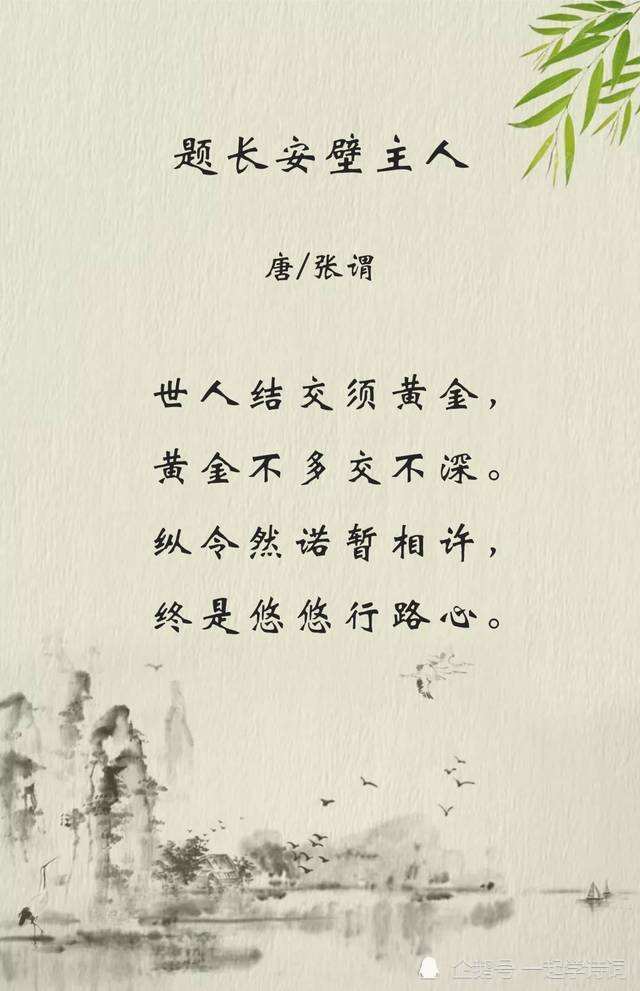 题长安壁主人
唐/张谓
世人结交须黄金，
黄金不多交不深。
纵令然诺暂相许，
终是悠悠行路心。
企鹅号 一起学诗词